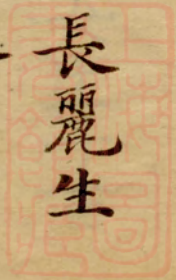 長麗生